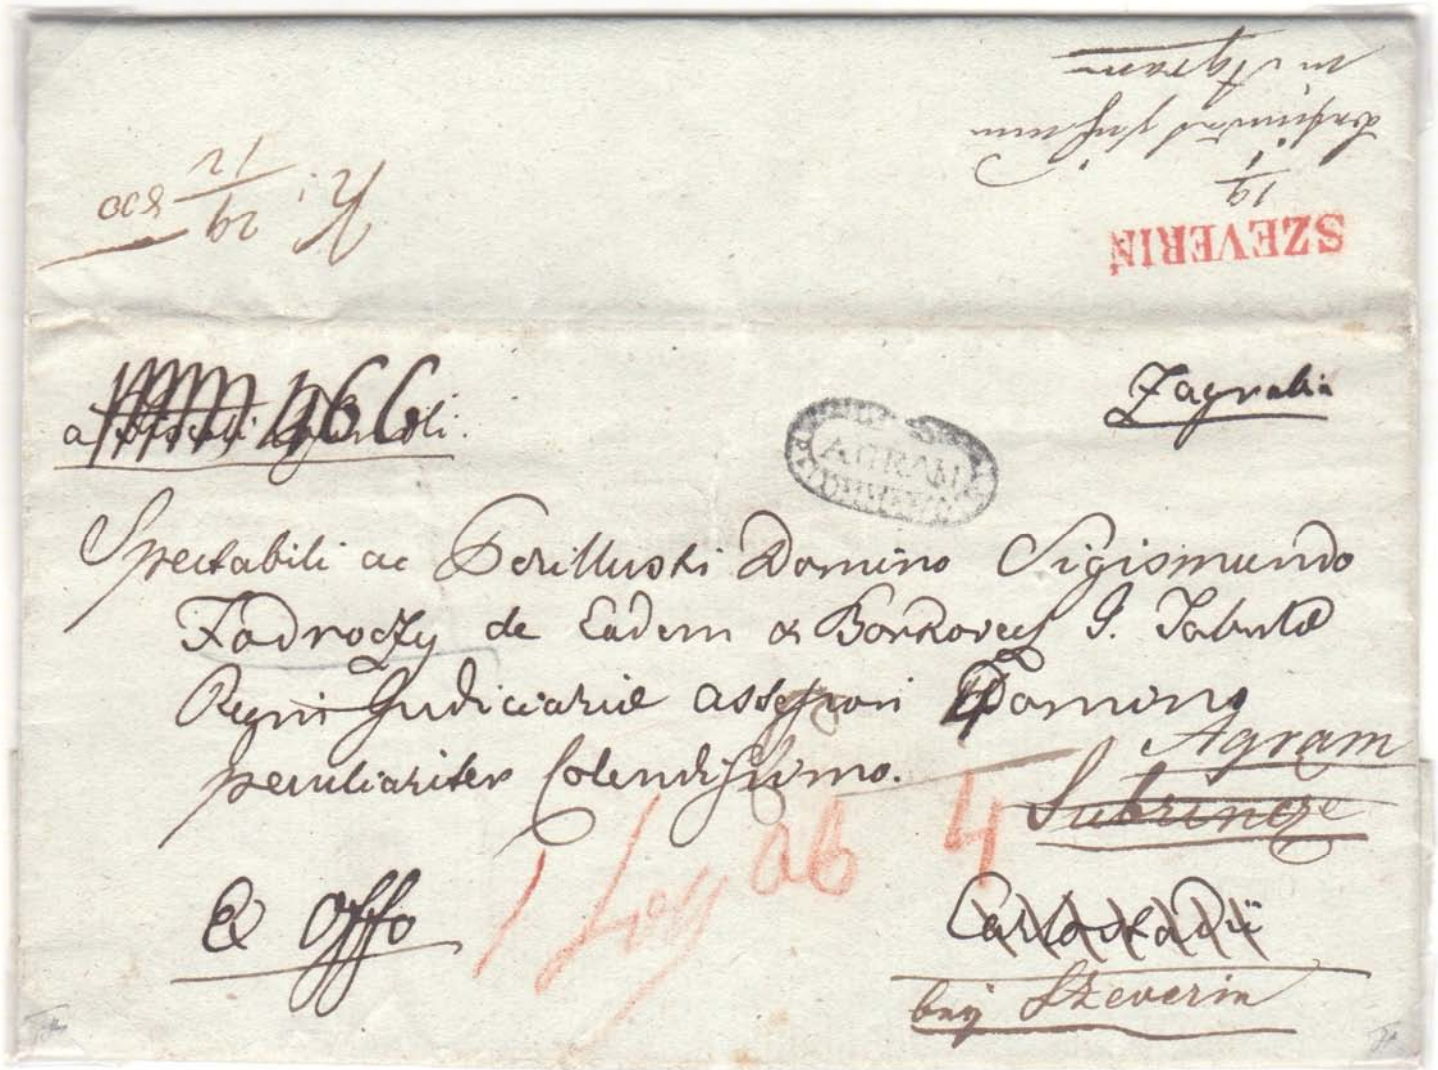 in Agram
19
1
SZEVERIN
29
12 800
466
Zagrabia
AGRAM
Spectabili ac Perillustri Domino Sigismundo
Zadroczy de Eadem & Borkovecz I. Tabulæ
Regni Judiciariæ assessori Domino
peculiariter Colendissimo.
Agram
Subrincze
Ex Offo
ab 4
Carlostadii
bey Szeverin